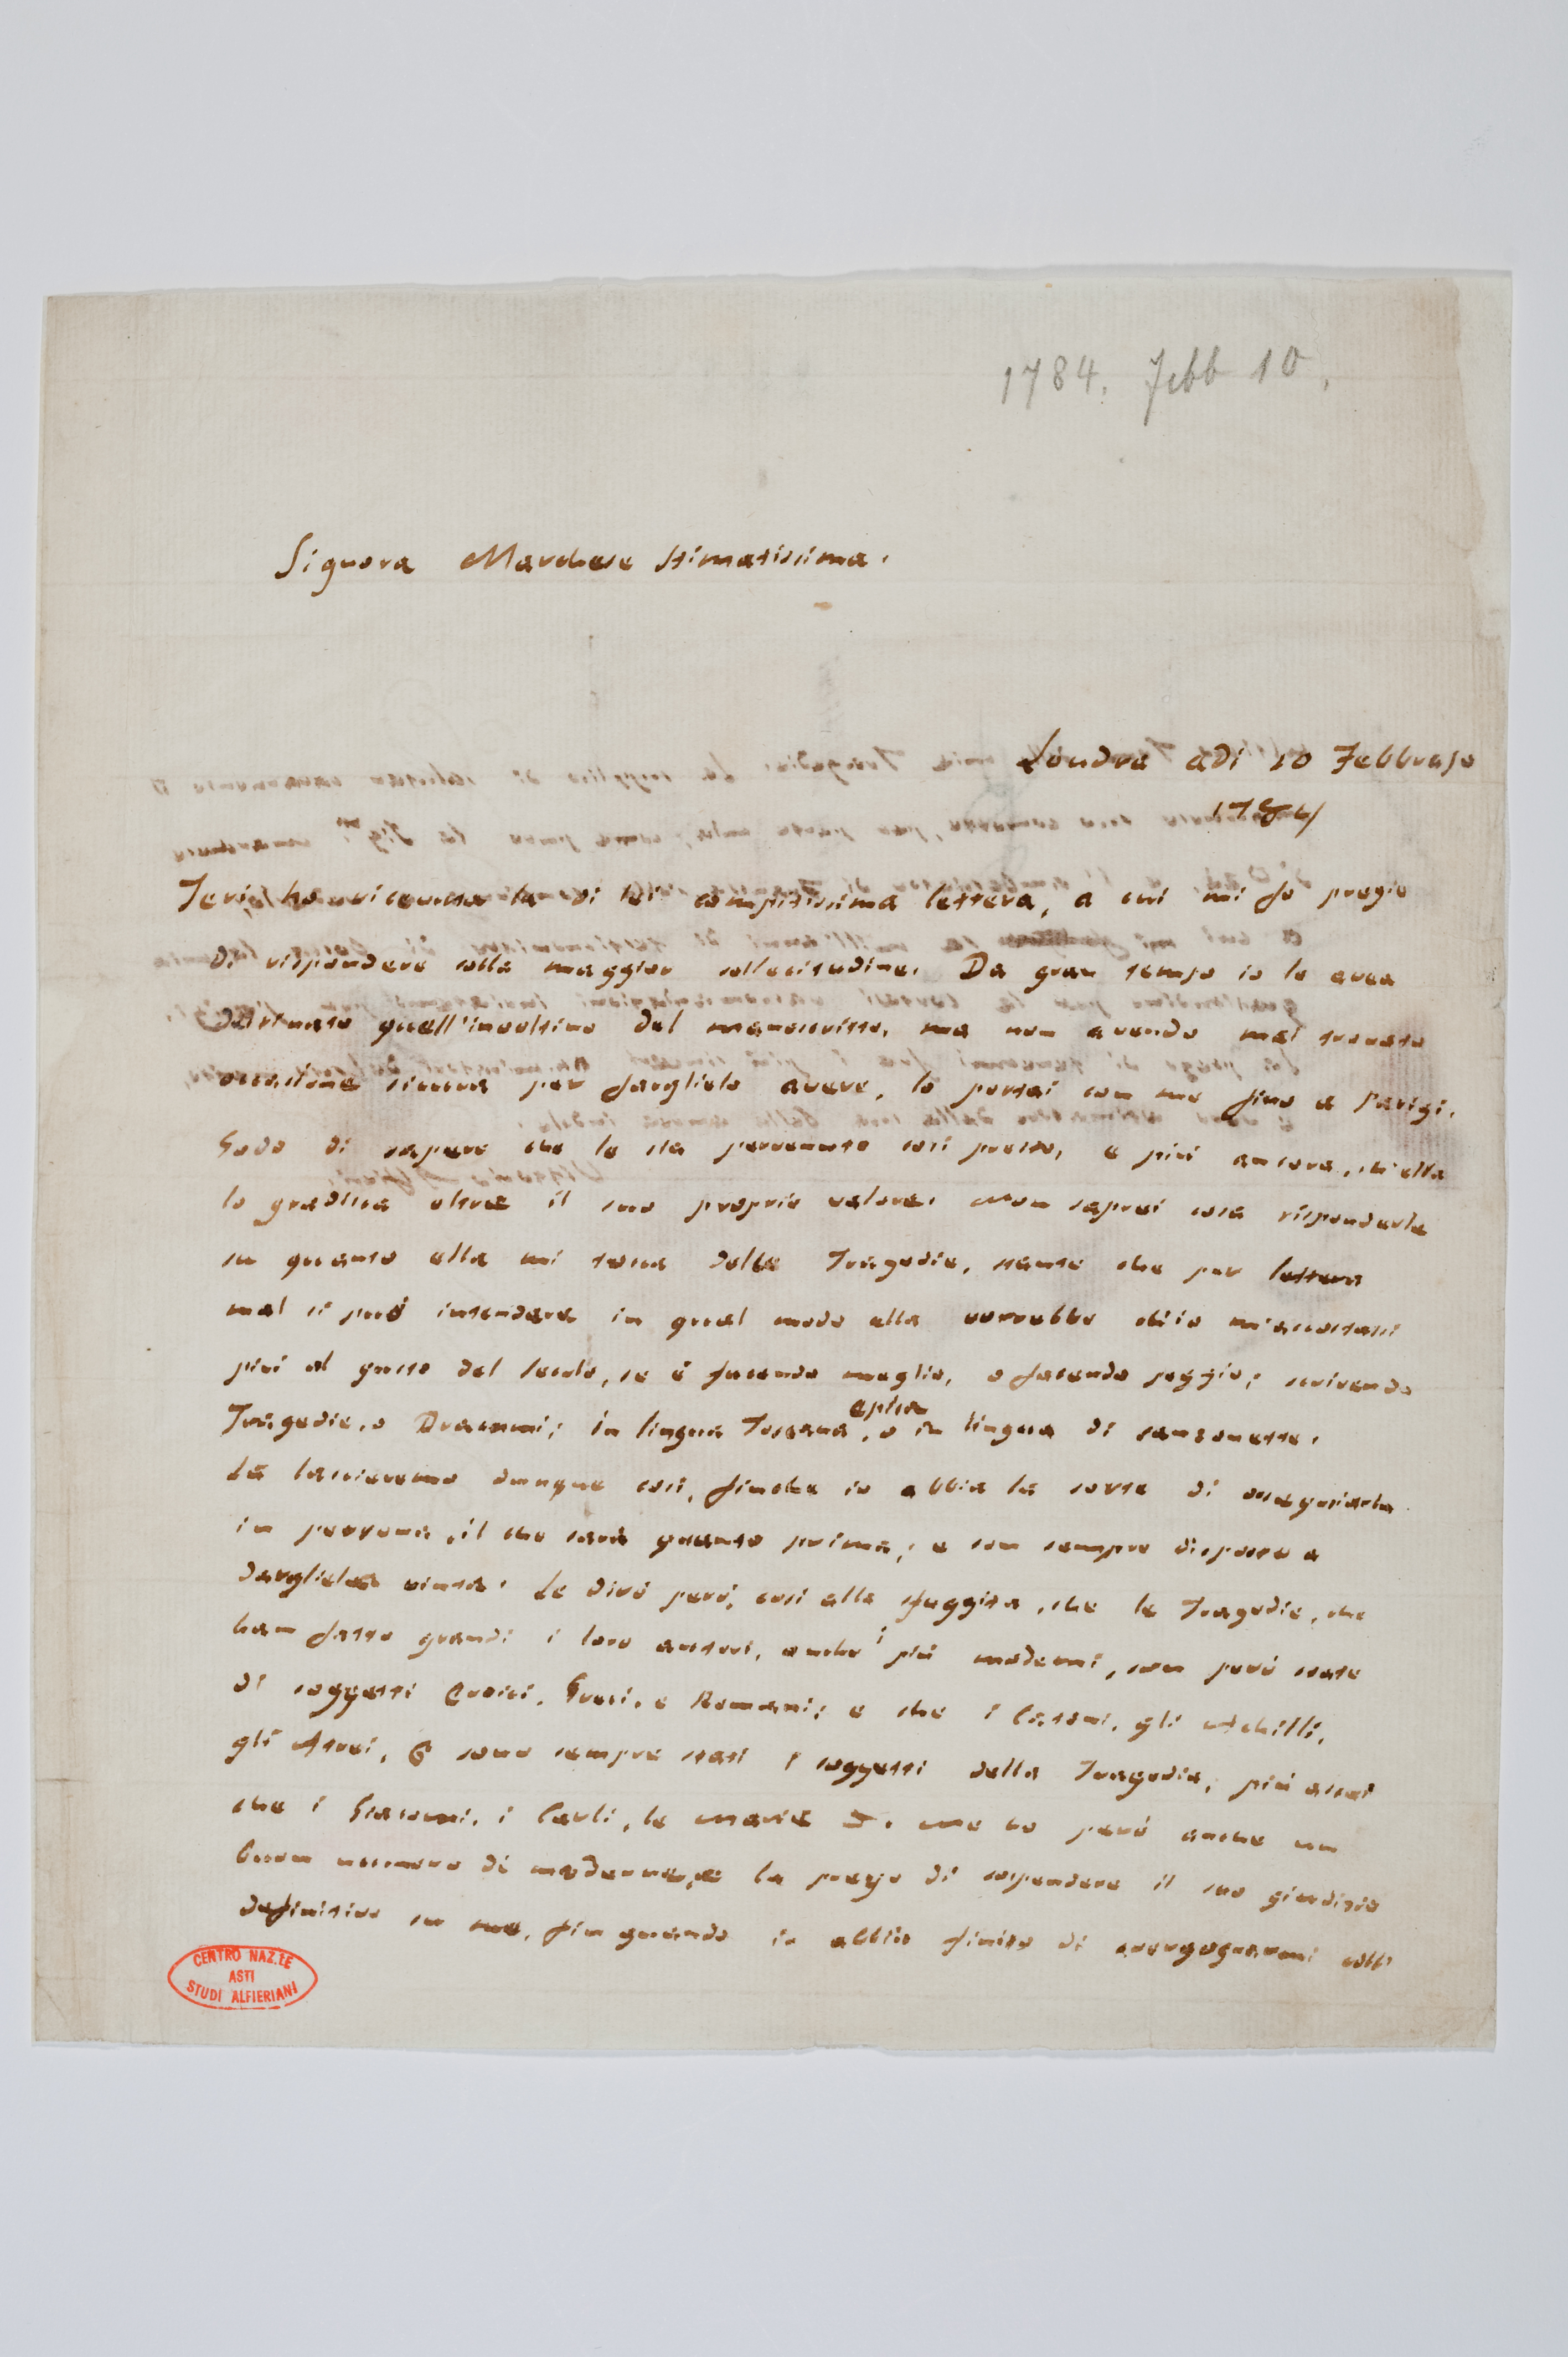 1784. Febb 10.
Signora Marchese stimatissima.
Londra adi 10 Febbrajo
1784
Jeri, ho ricevuta la di lei compitissima lettera, a cui mi fo pregio
di rispondere colla maggior sollecitudine. Da gran tempo io le avea
destinato quell'involtino del manoscritto, ma non avendo mai trovato
occasione sicura per farglielo avere, lo portai con me fino a Parigi.
Godo di sapere che le sia pervenuto così presto, e più ancora, ch'ella
lo gradisca oltre il suo proprio valore. Non saprei cosa risponderle
su quanto ella mi tocca delle Tragedie, stante che per lettera
mal si può intendere in qual modo ella vorrebbe ch'io m'accostassi
più al gusto del secolo, se è facendo meglio, o facendo peggio; scrivendo
Tragedie, o Drammi; in lingua Toscana epica, o in lingua di canzonette.
La lascieremo dunque così, finche io abbia la sorte di ossequiarla
in persona, il che sarà quanto prima; e son sempre disposto a
dargliela vinta. Le dirò però, così alla sfuggita, che le Tragedie, che
han fatto grandi i loro autori, anche i più moderni, son però state
di soggetti Eroici, Greci, e Romani; e che i Catoni, gli Achilli,
gli Atrei, & sono sempre stati i soggetti della Tragedia, più assai
che i Giacomi, i Carli, le Marie &. Ne ho però anche un
buon numero di moderne, e la prego di sospendere il suo giudizio
definitivo su me, fin quando io abbia finito di svergognarmi coll'
CENTRO NAZ.LE
ASTI
STUDI ALFIERIANI